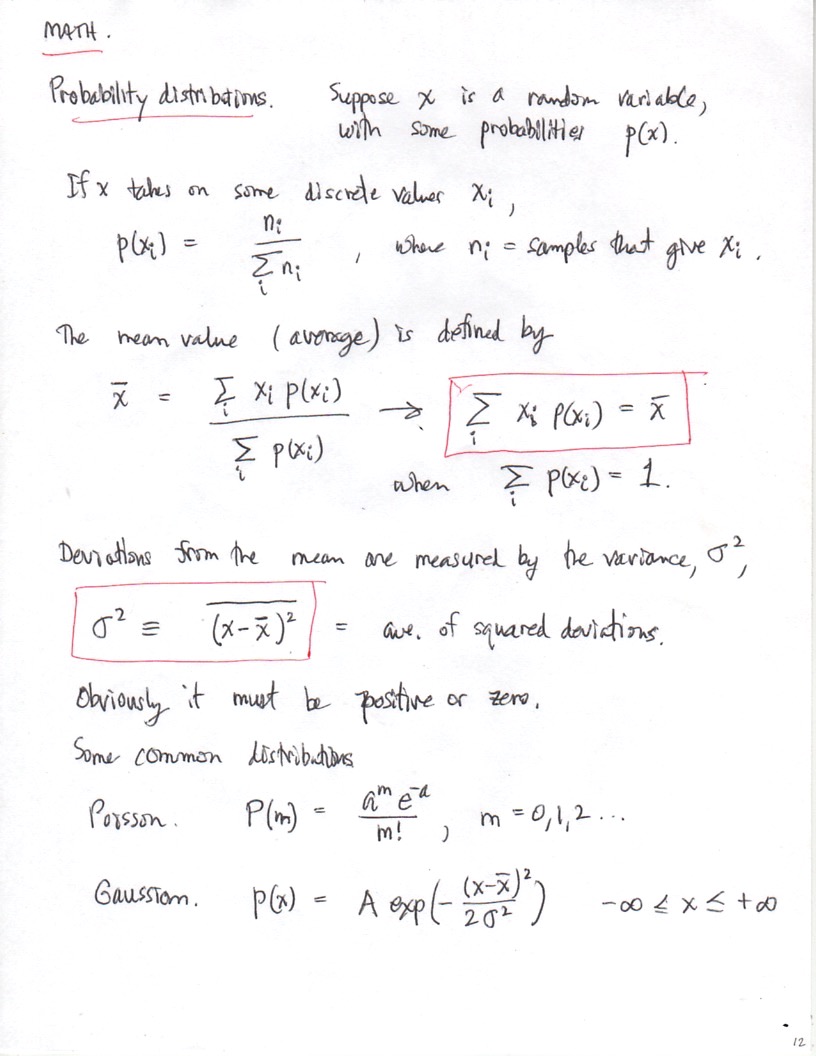 MATH.
Probability distributions. Suppose x is a random variable,
with some probabilities p(x).
If x takes on some discrete values xᵢ,
p(xᵢ) = nᵢ / ∑ᵢ nᵢ , where nᵢ = samples that give xᵢ.
The mean value (average) is defined by
x̄ = ∑ᵢ xᵢ p(xᵢ) / ∑ᵢ p(xᵢ) → ∑ᵢ xᵢ p(xᵢ) = x̄
when ∑ᵢ p(xᵢ) = 1.
Deviations from the mean are measured by the variance, σ²,
σ² ≡ \overline{(x-x̄)²} = ave. of squared deviations.
Obviously it must be positive or zero.
Some common distributions
Poisson. P(m) = aᵐ e⁻ᵃ / m! , m = 0,1,2 ...
Gaussian. p(x) = A exp(- (x-x̄)² / 2σ²) -∞ ≤ x ≤ +∞
12